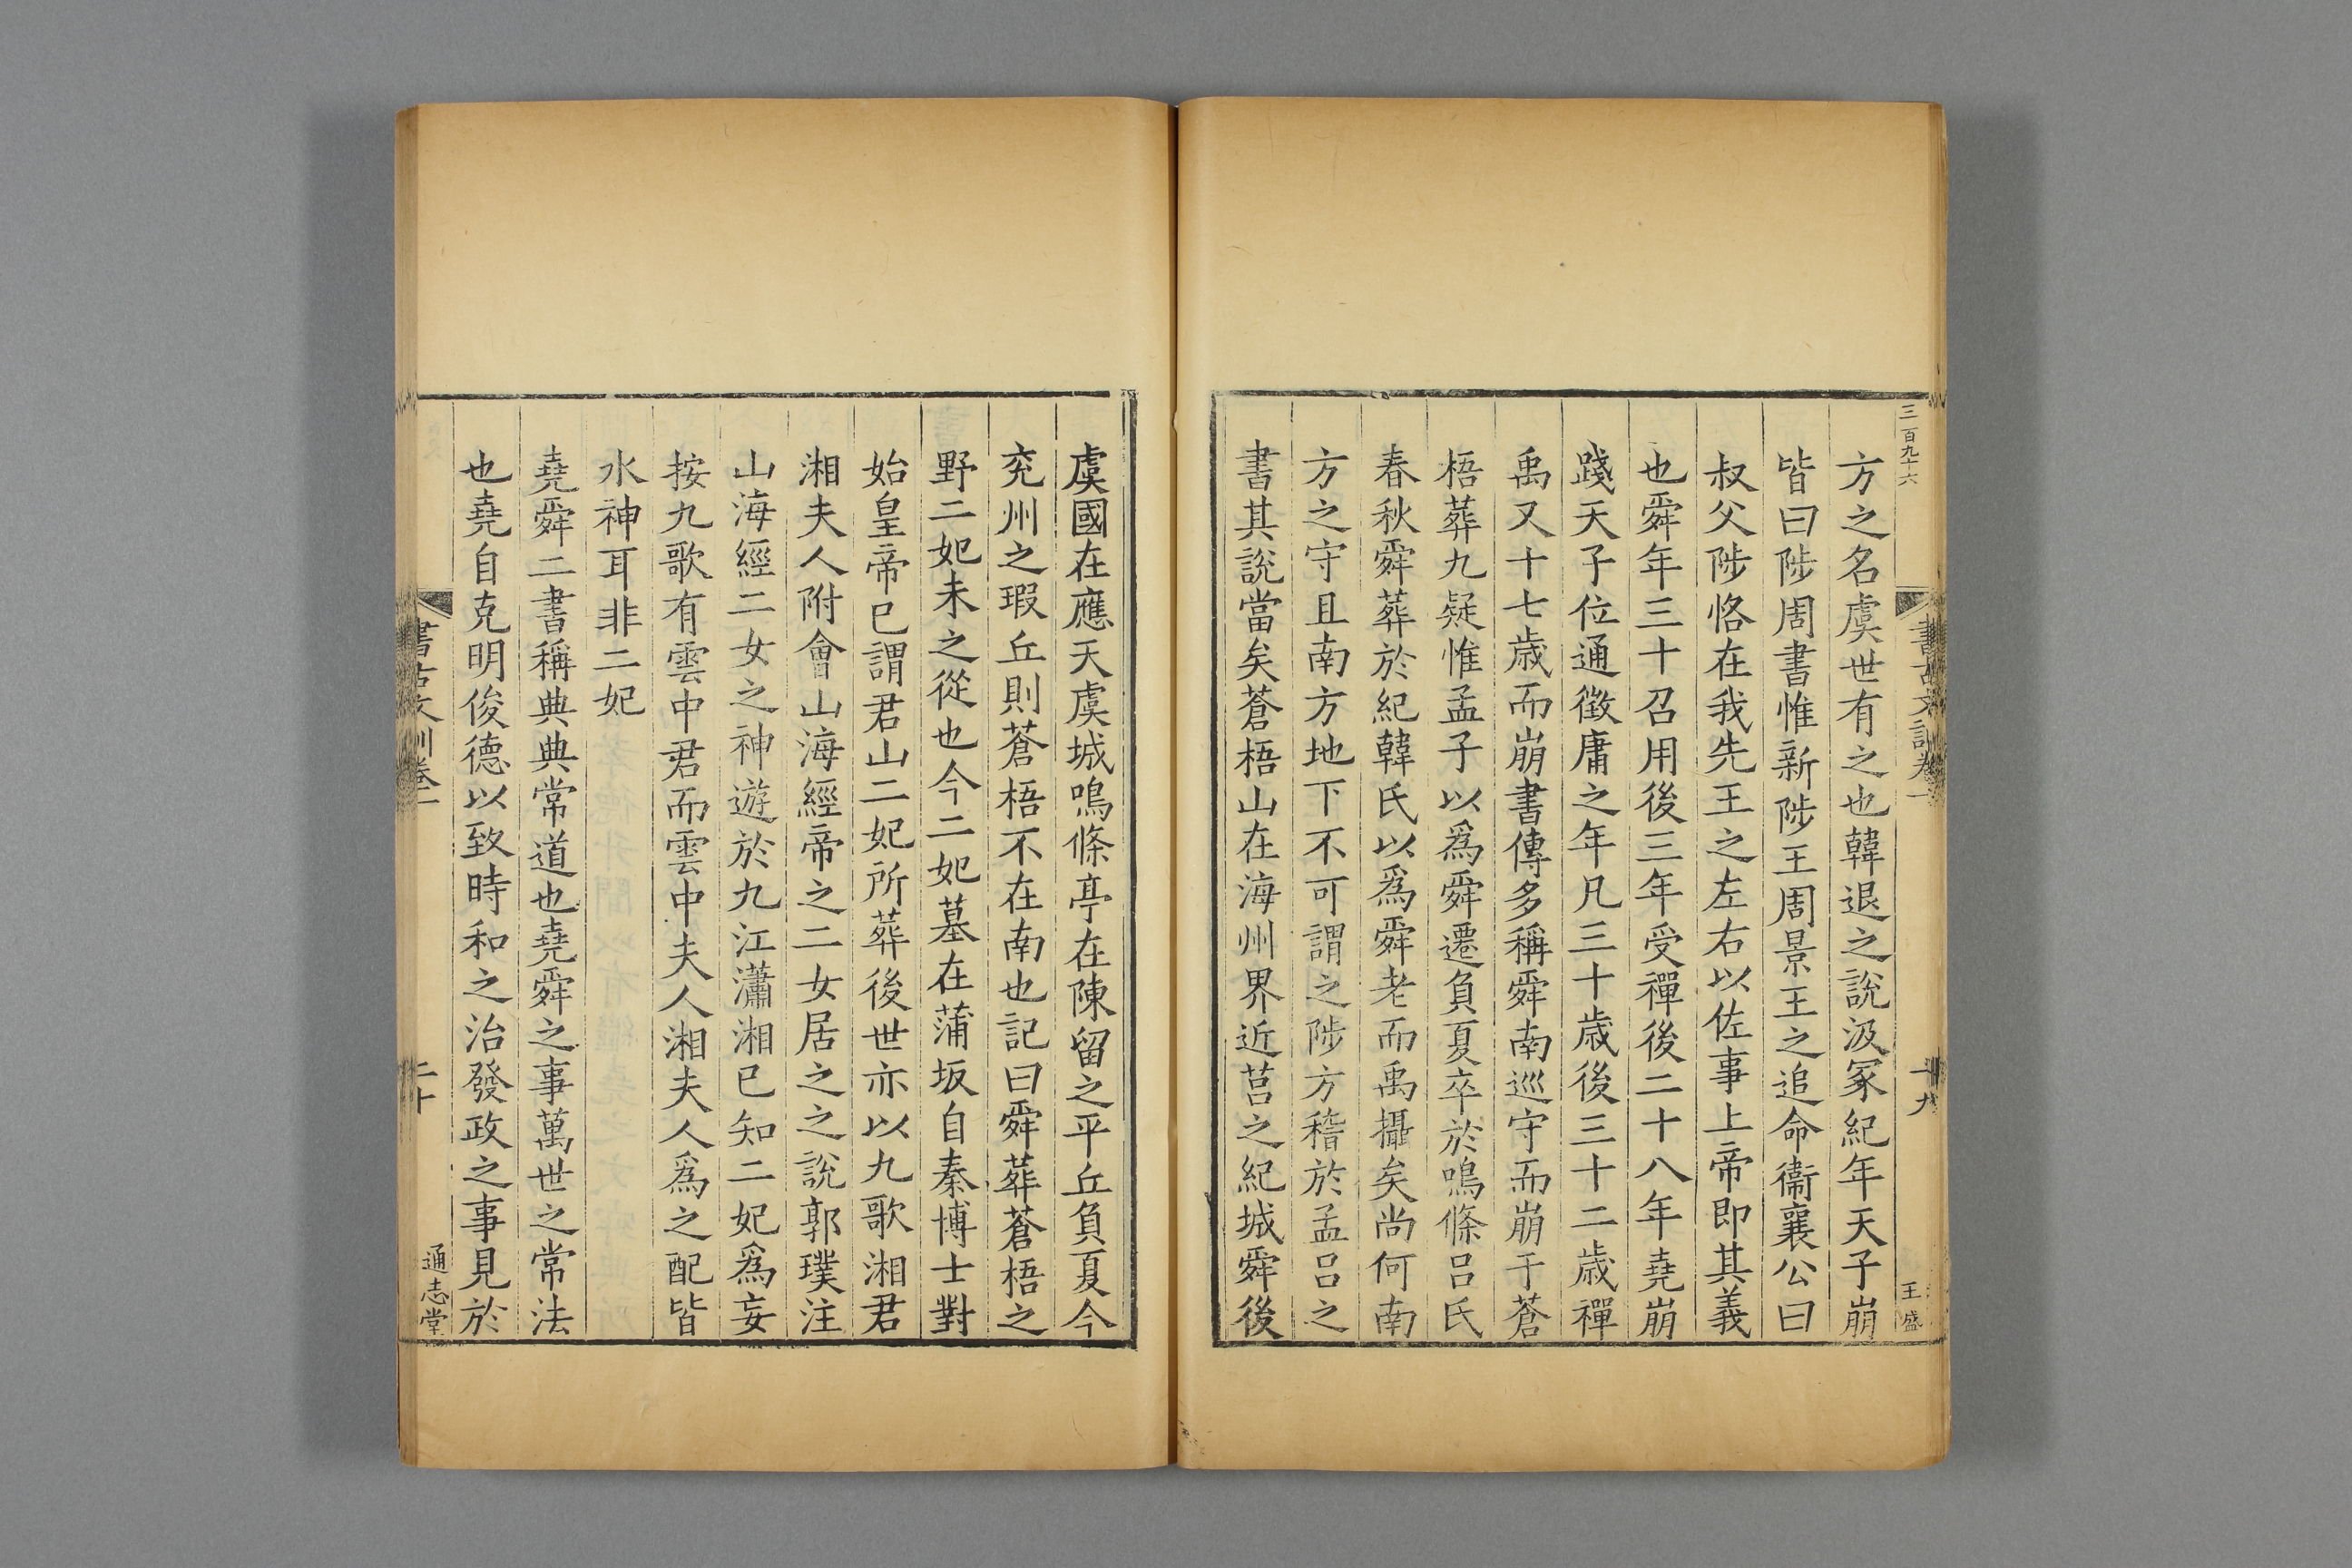 三百九十六
書古文訓卷一
十九
王盛
方之名虞世有之也韓退之說汲冢紀年天子崩
皆曰陟周書惟新陟王周景王之追命衞襄公曰
叔父陟恪在我先王之左右以佐事上帝即其義
也舜年三十召用後三年受禪後二十八年堯崩
踐天子位通徵庸之年凡三十歲後三十二歲禪
禹又十七歲而崩書傳多稱舜南巡守而崩于蒼
梧葬九疑惟孟子以爲舜遷負夏卒於鳴條呂氏
春秋舜葬於紀韓氏以爲舜老而禹攝矣尚何南
方之守且南方地下不可謂之陟方稽於孟呂之
書其說當矣蒼梧山在海州界近莒之紀城舜後
虞國在應天虞城鳴條亭在陳留之平丘負夏今
兖州之瑕丘則蒼梧不在南也記曰舜葬蒼梧之
野二妃未之從也今二妃墓在蒲坂自秦博士對
始皇帝已謂君山二妃所葬後世亦以九歌湘君
湘夫人附會山海經帝之二女居之之說郭璞注
山海經二女之神遊於九江瀟湘已知二妃爲妄
按九歌有雲中君而雲中夫人湘夫人爲之配皆
水神耳非二妃
堯舜二書稱典典常道也堯舜之事萬世之常法
也堯自克明俊德以致時和之治發政之事見於
書古文訓卷一
二十
通志堂